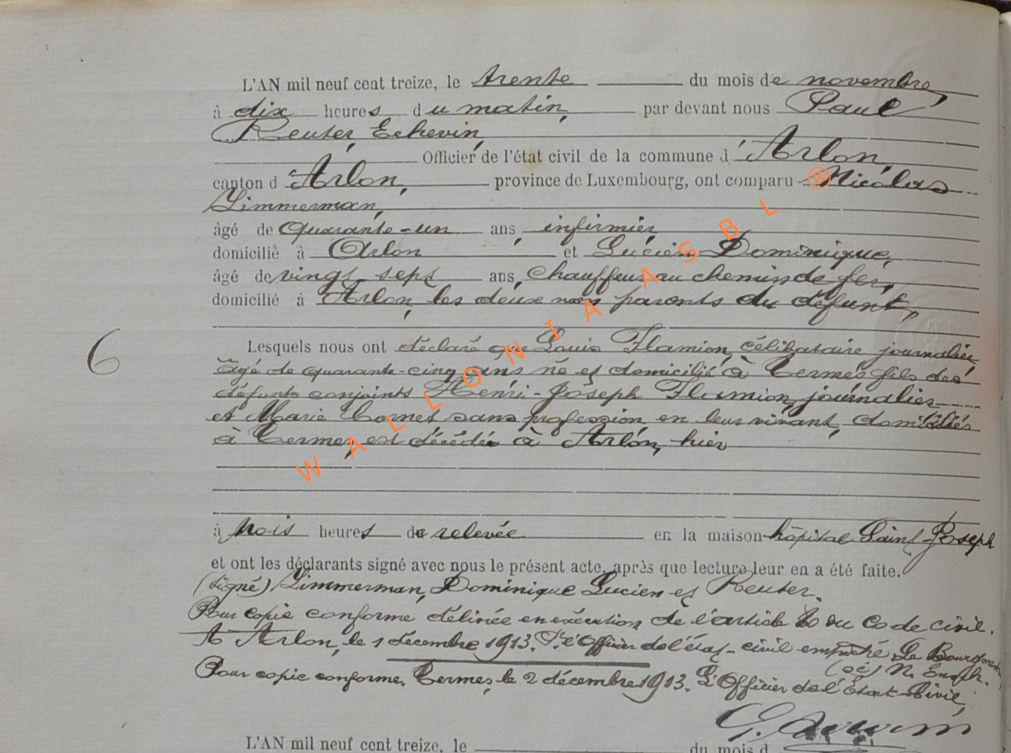 L'AN mil neuf cent treize, le trente du mois de novembre
à dix heures du matin, par devant nous Paul
Reuter, Echevin,
Officier de l'état civil de la commune d'Arlon,
canton d'Arlon, province de Luxembourg, ont comparu Nicolas
Zimmerman,
âgé de quarante-un ans, infirmier
domicilié à Arlon et Lucien Dominique,
âgé de vingt sept ans, chauffeur au chemin de fer,
domicilié à Arlon, les deux non parents du défunt,
6
Lesquels nous ont déclaré que Louis Flamion, célibataire journalier,
âgé de quarante-cinq ans né et domicilié à Termes fils des
défunts conjoints Henri-Joseph Flamion, journalier
et Marie Cornet sans profession, en leur vivant, domiciliés
à Termes, est décédé à Arlon, hier
à trois heures de relevée en la maison hôpital Saint-Joseph
et ont les déclarants signé avec nous le présent acte, après que lecture leur en a été faite.
(signé) Zimmerman, Dominique Lucien et Reuter.
Pour copie conforme délivrée en exécution de l'article 80 du Code civil.
A Arlon, le 1 décembre 1913. Pr. l'Officier de l'état-civil empêché Le Bourgmestre,
(sé) N.
Pour copie conforme. Termes, le 2 décembre 1913. L'Officier de l'Etat-Civil,
L'AN mil neuf cent treize, le du mois d
WALLONIA ASBL ®